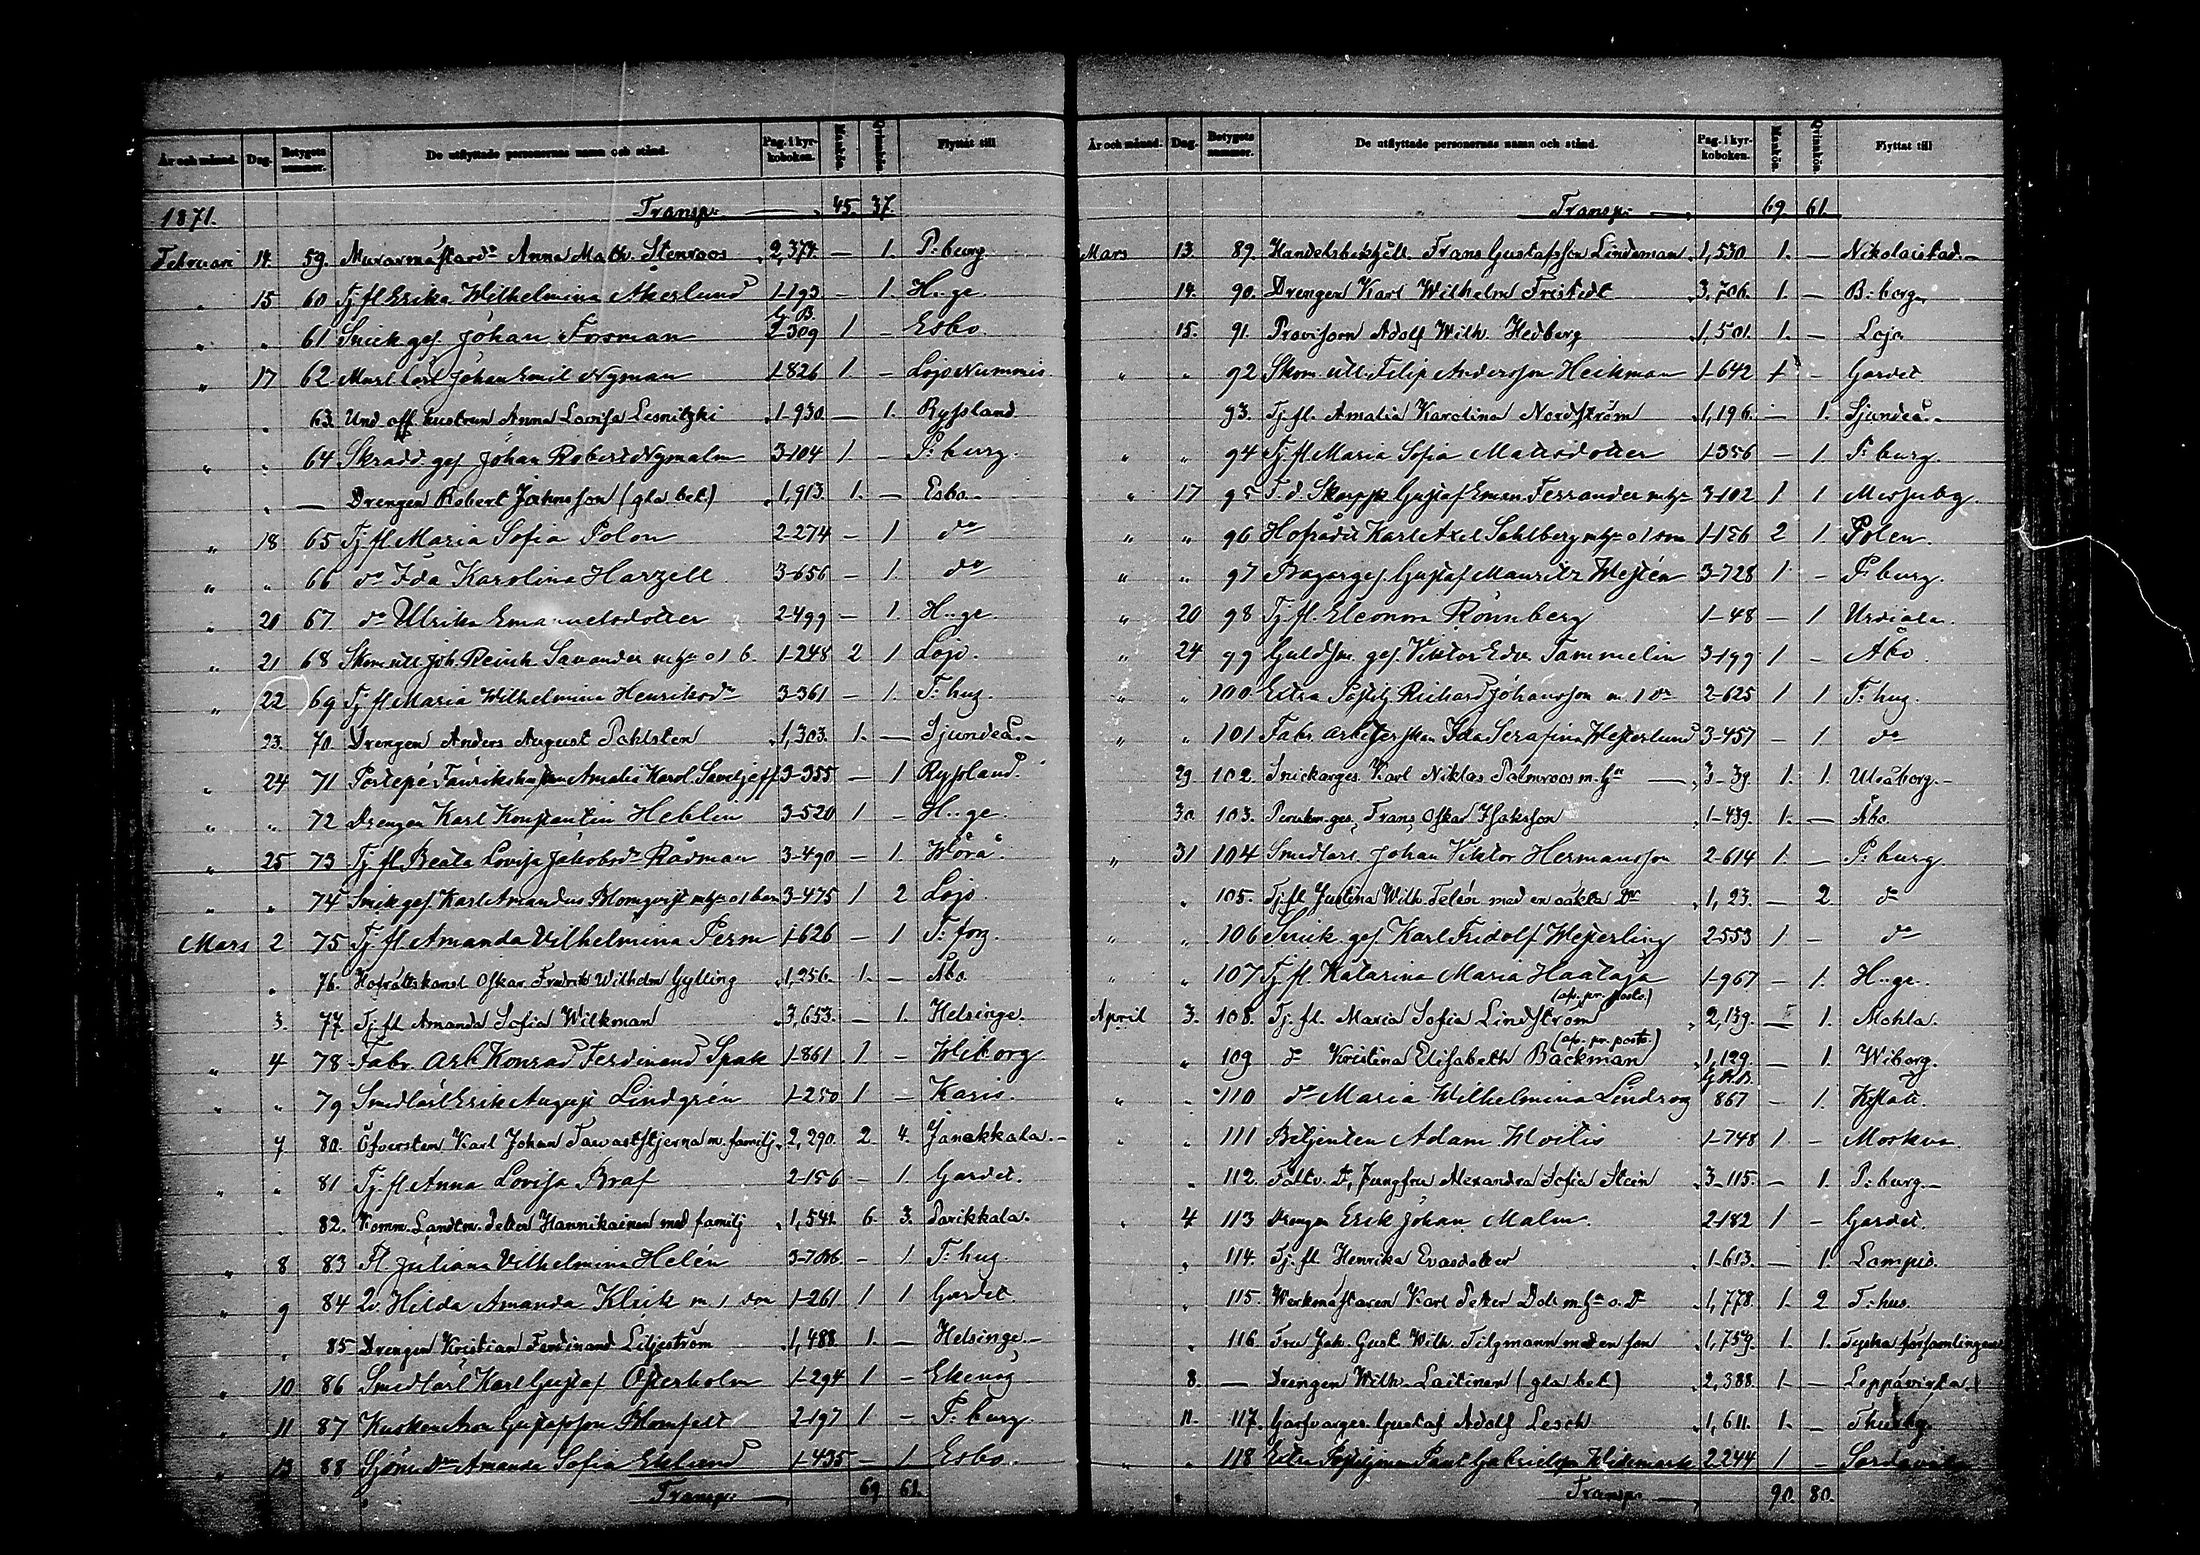 År och månad. Dag. Betygets nummer. De utflyttade personernas namn och stånd. Pag. i kyrkoboken. Mankön. Qvinkön. Flyttat till
1871. Transp. 45. 37.
Februari 14. 59. Murarmästard:r Anna Math. Stenroos 2,374. — 1. P:burg
" 15 60 Tj fl Erika Wilhelmina Åkerlund 1-193 — 1. H:ge.
" " 61 Snick gef. Johan Forsman 2-309 1 — Esbo.
" 17 62 Johan Emil Nyman 1-826 1. — Lojo Nummis
" 63. Und. off. hustrun Anna Lovisa Lesnitzki 1-930 — 1. Ryssland
" " 64 Skradd. gef Johan Robert Nymalm 3-104 1 — P:burg.
" — Drengen Robert Johnsson (gla bet.) 1,913. 1. — Esbo
" 18 65 Tj fl Maria Sofia Polon 2-274 — 1 do
" " 66 do Ida Karolina Harzell 3-656 — 1. do
" 20 67. do Ulrika Emanuelsdotter 2-499 — 1. H:ge.
" 21 68 Joh. Reinh. Savander o 1 b. 1-248 2 1 Lojo.
" 22 69 Tj fl Maria Wilhelmina Henriksdr 3-361 — 1. T:hus.
23. 70. Drengen Anders August Pahlsten 1,303. 1. — Sjundeå.
" 24 71 Amalia Karol. Saveljeff 3-355 — 1 Ryssland.
" " 72 Drengen Karl Konstantin Heblin 3-520 1 — H:ge.
" 25 73 Tj fl. Beata Lovisa Jakobsdr Rådman 3-490 — 1. Wörå
" " 74 Snick gef. Karl Amandus Blomqvist o 1 barn 3-475 1 2 Lojo
Mars 2 75 Tj fl Amanda Vilhelmina Perm 1-626 — 1
" 76. Hofrättskansl. Oskar Fredrik Wilhelm Gylling 1,256. 1. — Åbo
3. 77. Tj. fl Amanda Sofia Wilkman 3,653. — 1. Helsinge.
" 4 78 Fabr. Arb. Konrad Ferdinand Spak 1-861 1 — Wiborg
" " 79 Smedlärl Erik August Lindgrén 1-250 1 — Karis.
7 80. Öfversten Karl Johan Tawaststjerna m. familj 2,290. 2. 4. Janakkala.
" " 81 Tj. fl Anna Lovisa Braf 2-156 — 1. Gardet.
82. Komm. Landtm. Petter Hannikainen med familj 1,541. 6. 3. Parikkala.
" 8 83 Fl. Juliana Vilhelmina Helén 3-706 — 1 T:hus.
" 9 84 Qv. Hilda Amanda Klrik m. 1 son 1-261 1 1 Gardet.
" 85. Drengen Kristian Ferdinand Liljeström 1,488 1. — Helsinge.
" 10 86 Smedlärl Karl Gustaf Österholm 1-294 1 — Ekenäs
" 11 87 Kusken Gustafsson Blomfelt 2-197 1 — P:burg.
" 13 88 Sjöm. Dr Amanda Sofia Eklund 1-435 — 1 Esbo.
Transp. 69 61.
År och månad. Dag. Betygets nummer. De utflyttade personernas namn och stånd. Pag. i kyrkoboken. Mankön. Qvinkön. Flyttat till
Transp. 69. 61.
Mars 13. 89. Frans Gustafsson Lindeman 1,530 1. — Nikolaistad.
14. 90. Drengen Karl Wilhelm Fristedt 3,706. 1. — B:borg.
15. 91. Provisorn Adolf Wilh. Hedberg 1,501. 1. — Lojo
" " 92 Filip Andersson Heikman 1-642 1 — Gardet.
93. Tj. fl. Amalia Karolina Nordström 1,196. — 1. Sjundeå.
" " 94 Tj. fl Maria Sofia Mattsdotter 1-356 — 1. P:burg.
" 17 95 F. d. Gustaf Eman. Ferrander 3-102 1 1
" " 96 Hofrådet Karl Axel Sahlberg o 1 son 1-156 2 1. Polen.
" " 97 Bagargef. Gustaf Mauritz Westén 3-728 1 — P:burg.
" 20 98 Tj. fl. Eleonora Rönnberg 1-48 — 1 Urdiala.
" 24 99 Guldsm. gef. Viktor Edv. Tammelin 3-199 1 — Åbo
" " 100. Extra Richard Johansson m. 1 dr 2-625 1 1 T:hus.
" " 101 Fabr. arbeterskan Ida Serafina Westerlund 3-457 — 1. do
29. 102. Snickarges. Karl Niklas Palmroos m. h:u 3-39. 1. 1. Uleåborg.
30. 103. Frans Oskar Isaksson 1-439. 1. — Åbo.
" 31 104 Smedlärl. Johan Viktor Hermansson 2-614 1. — P:burg
" 105. Tj. fl Justina Wilh. Felén med en oäkta Dr 1,23. — 2. do
" " 106 Snick. gef. Karl Fridolf Westerling 2-553 1 — do
" " 107 Tj. fl. Katarina Maria Haataja 1-967 — 1. H:ge.
(afs. pr. posto.)
April 3. 108. Tj. fl. Maria Sofia Lindström 2,139. — 1. Mohla.
(afs. pr. posto.)
" 109 do Kristina Elisabeth Bäckman 1,129. — 1. Wiborg.
" " 110 do Maria Wilhelmina Lindroos 867 — 1.
" " 111 Betjenten Adam Woitis 1-748 1 — Moskva
" 112. Fältv. Dr, Jungfru Alexandra Sofia Stein 3-115. — 1. P:burg.
" 4 113 Drengen Erik Johan Malm. 2-182 1 — Gardet.
" 114. Tj. fl. Henrika Evasdotter 1-613. — 1. Lampis.
" 115. Werkmästaren Karl Petter m. h:u o. Dr 1,778. 1. 2. T:hus.
" 116 Fru Joh. Gust. Wilh. Tilgmann med en son 1,759. 1. 1. Tyska församlingen
8. — Drengen Wilh. Laitinen (gla bet) 2,388. 1. — Leppävirta.
11. 117. Garfvarges. Gustaf Adolf Lesch 1,611. 1. — Thusby
" " 118 Paul Gabrielsson Widemark 2244 1 — Sordavala
Transp. 90. 80.